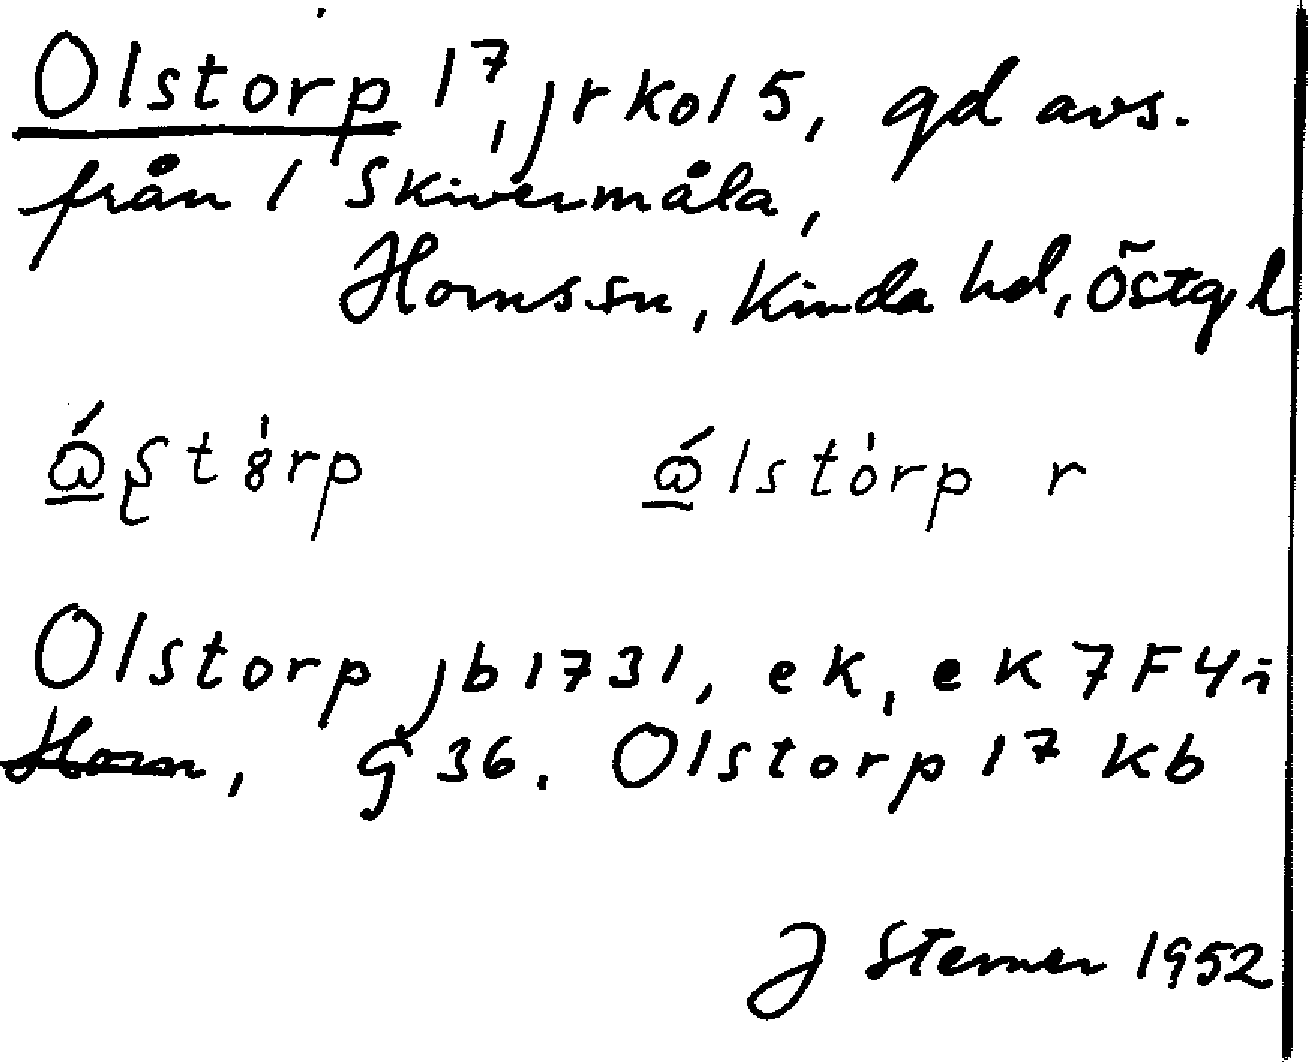 Olstorp 1⁷, jr kol 5, gd avs.
från 1 Skivermåla,
Horns sn, Kinda hd, Östgl
Olstorp jb 1731, ek, ek 7F4i
Horn, G 36. Olstorp 1⁷ kb
J Sterner 1952